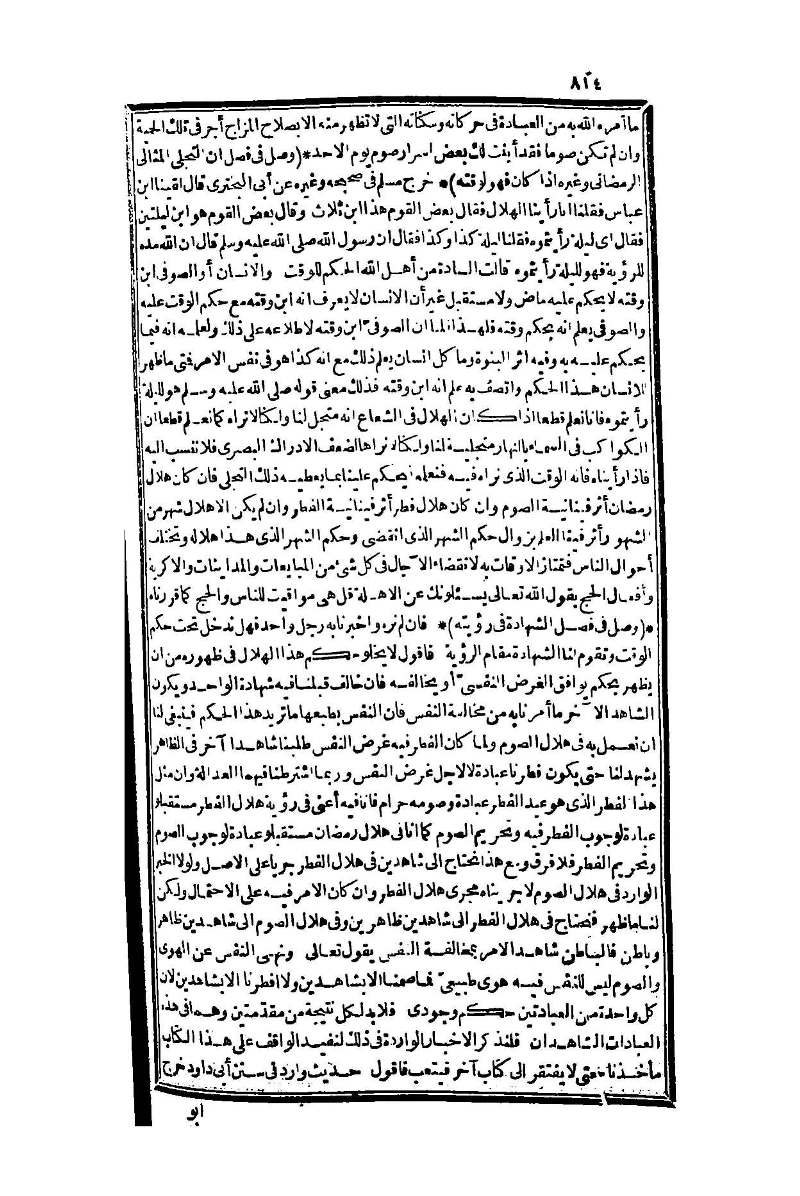 ٨١٤
ما أمره الله به من العبادة فى حركاته وسكناته التى لا تظهر منه الا بصلاح المزاج أجر فى تلك الحمية
وان لم تكن صوما فقد أبنت لك بعض اسرار صوم يوم الاحد *(وصل فى فصل ان التجلى المثالى
الرمضانى وغيره اذا كان فهو لوقته)* خرج مسلم فى صحيحه وغيره عن أبى البخترى قال لقينا ابن
عباس فقلنا انا رأينا الهلال فقال بعض القوم هذا ابن ثلاث وقال بعض القوم هو ابن ليلتين
فقال اى ليلة رأيتموه فقلنا ليلة كذا وكذا فقال ان رسول الله صلى الله عليه وسلم قال ان الله مده
للرؤية فهو لليلة رأيتموه قالت السادة من أهل الله الحكم للوقت والانسان أو الصوفى ابن
وقته لا يحكم عليه ماض ولا مستقبل غير أن الانسان لا يعرف انه ابن وقته مع حكم الوقت عليه
والصوفى يعلم انه بحكم وقته فلهذا قلنا ان الصوفى ابن وقته لاطلاعه على ذلك ولعلمه انه فيما
يحكم عليه به وفيه اثر البنوة وما كل انسان يعلم ذلك مع انه كذا هو فى نفس الامر فتى ما ظهر
الانسان هذا الحكم واتصف به علم انه ابن وقته فذلك معنى قوله صلى الله عليه وسلم هو لليلة
رأيتموه فانا نعلم قطعا اذا كان الهلال فى الشعاع انه متجل لنا ولكنا لا نراه كما نعلم قطعا ان
الكواكب فى السماء بالنهار متجلية لنا ولكنا لا نراها لضعف الادراك البصرى فلا ننسب اليه
فاذا رأيناه فانه الوقت الذى نراه فيه فنعلمه يحكم علينا بما يعطيه ذلك التجلى فان كان هلال
رمضان أثر فينا نية الصوم وان كان هلال فطر أثر فينا نية الفطر وان لم يكن الا هلال شهر من
الشهور أثر فينا العلم بزوال حكم الشهر الذى انقضى وحكم الشهر الذى هذا هلاله وتختلف
أحوال الناس فتمتاز الاوقات به لانقضاء الآجال فى كل شئ من المبايعات والمداينات والاكرية
وأفعال الحج يقول الله تعالى يسئلونك عن الاهلة قل هى مواقيت للناس والحج كما قررناه
*(وصل فى فصل الشهادة فى رؤيته)* فان لم نره واخبرنا به رجل واحد فهل ندخل تحت حكم
الوقت وتقوم لنا الشهادة مقام الرؤية فاقول لا يخلو حكم هذا الهلال فى ظهوره من ان
يظهر بحكم يوافق الغرض النفسى أو يخالفه فان خالف قبلنا فيه شهادة الواحد ويكون
الشاهد الآخر ما أمرنا به من مخالفة النفس فان النفس بطبعها ما تريد هذا الحكم فينبغى لنا
ان نعمل به فى هلال الصوم ولما كان الفطر فيه غرض النفس طلبنا شاهدا آخر فى الظاهر
يشهد لنا حتى يكون فطرنا عبادة لا لاجل غرض النفس وربما اشترطنا فيهما العدالة وان مثل
هذا الفطر الذى هو عيد الفطر عبادة وصومه حرام فانا فيه أعنى فى رؤية هلال الفطر مستقبلو
عبادة لوجوب الفطر فيه وتحريم الصوم كما انا فى هلال رمضان مستقبلو عبادة لوجوب الصوم
وتحريم الفطر فلا فرق ومع هذا نحتاج الى شاهدين فى هلال الفطر جريا على الاصل ولولا الخبر
الوارد فى هلال الصوم لأجريناه مجرى هلال الفطر وان كان الامر فيه على الاحتمال ولكن
لنا ما ظهر فنحتاج فى هلال الفطر الى شاهدين ظاهرين وفى هلال الصوم الى شاهدين ظاهر
وباطن فالباطن شاهد الامر بمخالفة النفس يقول تعالى ونهى النفس عن الهوى
والصوم ليس للنفس فيه هوى طبيعى فما صمنا الا بشاهدين ولا افطرنا الا بشاهدين لان
كل واحدة من العبادتين حكم وجودى فلابد لكل نتيجة من مقدمتين وهما فى هذه
العبادات الشاهدان فلنذكر الاخبار الواردة فى ذلك لنفيد الواقف على هذا الكتاب
مأخذنا حتى لا يفتقر الى كتاب آخر فيتعب فاقول حديث وارد فى سنن أبى داود خرج
ابو